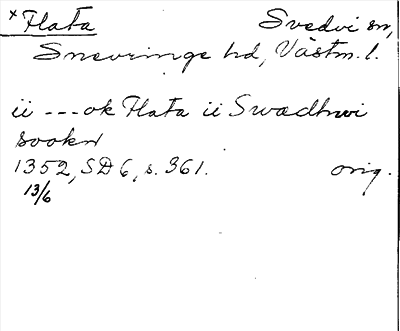 × Flata Svedvi sn,
Snevringe hd, Västm. l.
ii --- ok Flata ii Swadhwi
sookn
1352, SD 6, s. 361. orig.
13/6